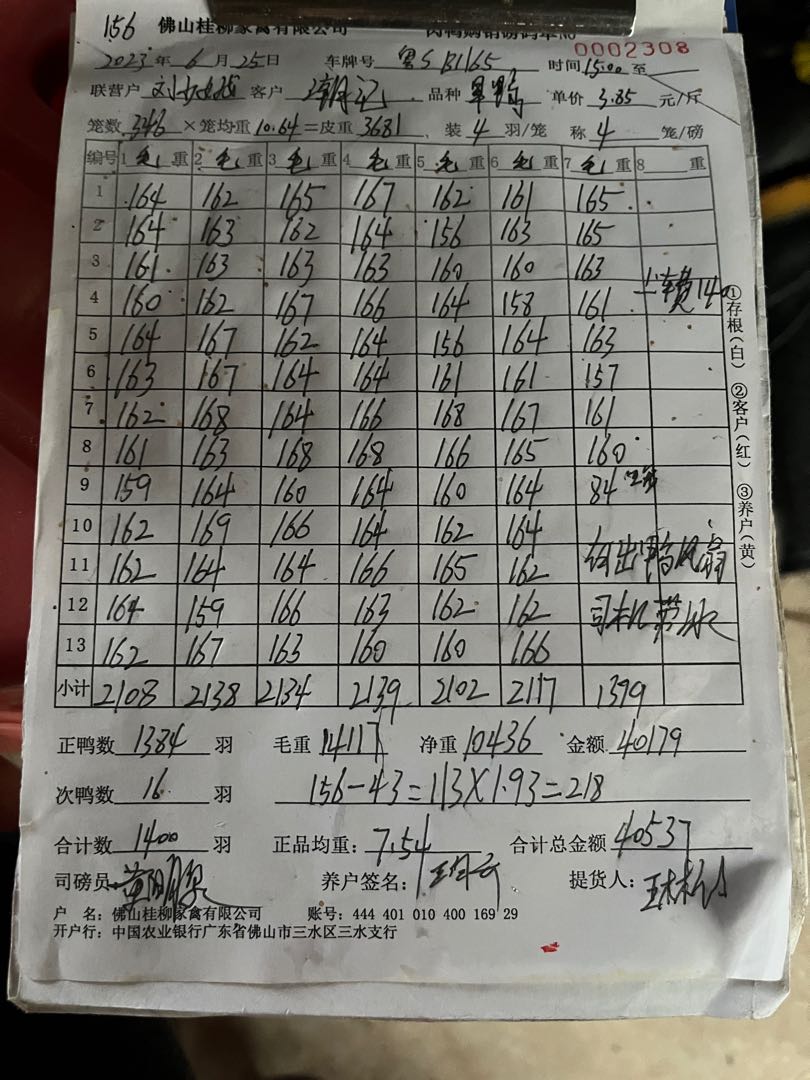 156 佛山桂柳家禽有限公司
0002308
2023年6月25日 车牌号 粤S B1165 时间15:00至
联营户 客户 潮记 品种 单价 3.85 元/斤
笼数 346 ×笼均重 10.64 =皮重 3681 , 装 4 羽/笼 称 4 笼/磅
编号 1 毛 重 2 毛 重 3 毛 重 4 毛 重 5 毛 重 6 毛 重 7 毛 重 8 重
1 164 162 165 167 162 161 165
2 164 163 162 164 156 163 165
3 161 163 163 163 160 160 163
4 160 162 167 166 164 158 161 上车费140
5 164 167 162 164 156 164 163
6 163 167 164 164 161 161 157
7 162 168 164 166 168 167 161
8 161 163 168 168 166 165 160
9 159 164 160 164 160 164 84
10 162 169 166 164 162 164
11 162 164 164 166 165 162
12 164 159 166 163 162 162 司机
13 162 167 163 160 160 166
小计 2108 2138 2134 2139 2102 2117 1379
①存根(白) ②客户(红) ③养户(黄)
正鸭数 1384 羽 毛重 14117 净重 10436 金额 40179
次鸭数 16 羽 156-43=113×1.93=218
合计数 1400 羽 正品均重: 7.54 合计总金额 40537
司磅员 养户签名: 提货人:
户 名: 佛山桂柳家禽有限公司 账号: 444 401 010 400 169 29
开户行: 中国农业银行广东省佛山市三水区三水支行